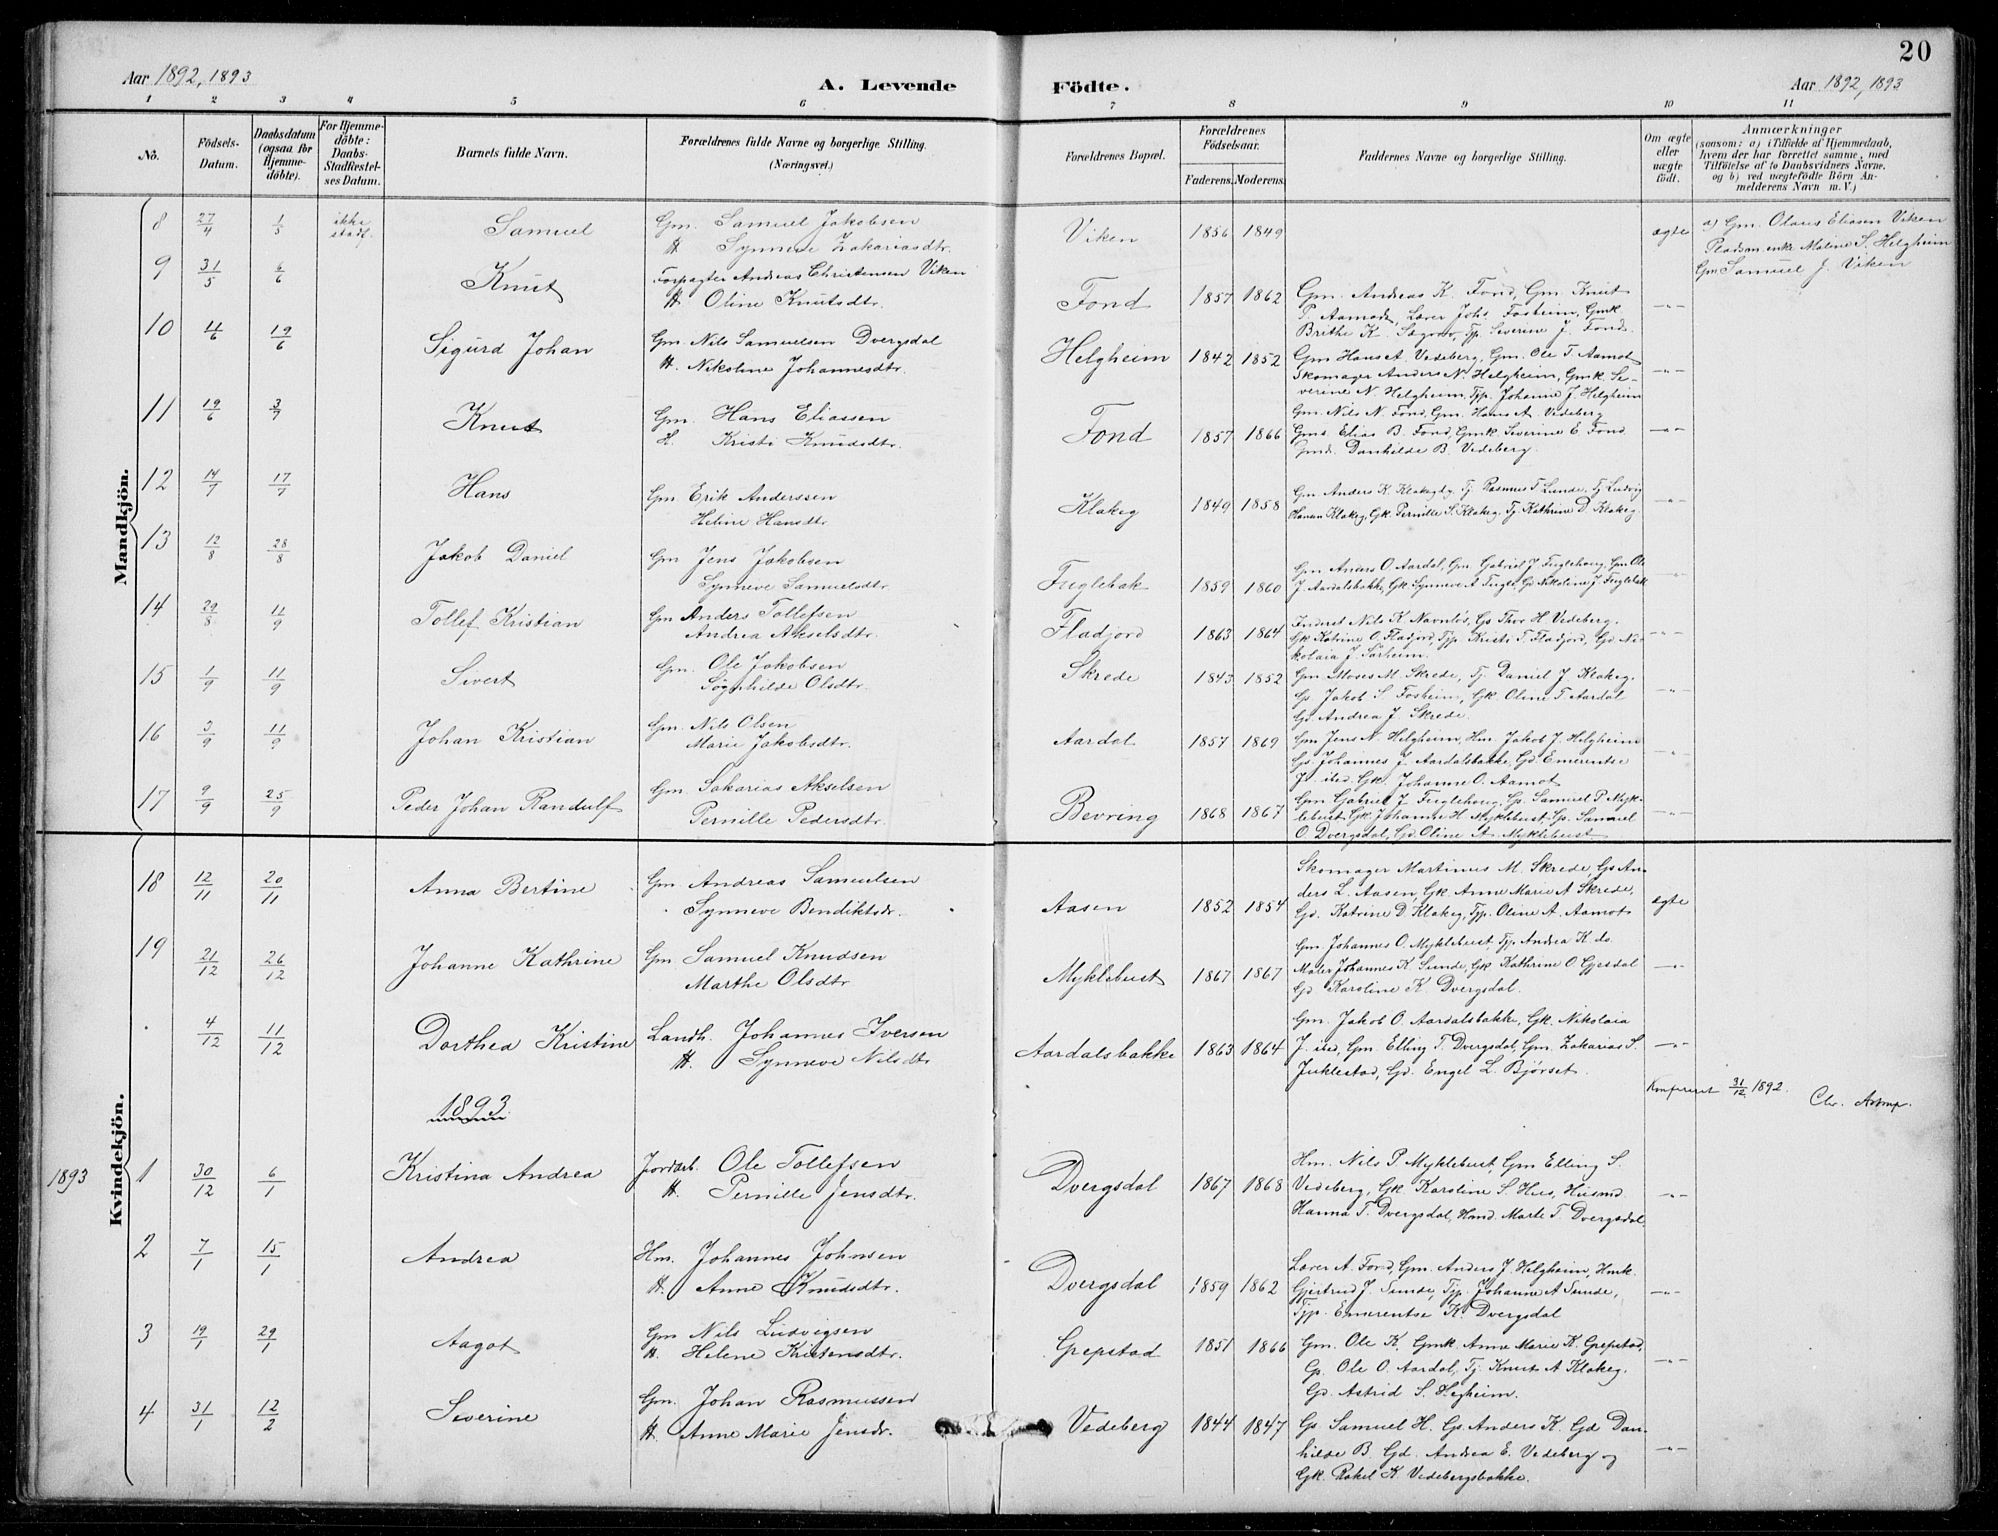 20
Aar 1892, 1893
A. Levende Födte.
Aar 1892, 1893
1 2 3 4 5 6 7 8 9 10 11
No.
Födsels-Datum.
Daabsdatum (ogsaa for Hjemmedöbte).
For Hjemmedöbte: Daabs-Stadfæstelses Datum.
Barnets fulde Navn.
Forældrenes fulde Navne og borgerlige Stilling. (Næringsvei.)
Forældrenes Bopæl.
Forældrenes Födselsaar.
Faderens. Moderens.
Faddernes Navne og borgerlige Stilling.
Om ægte eller uægte födt.
Anmærkninger
(saasom: a) i Tilfælde af Hjemmedaab, hvem der har forrettet samme, med Tilföielse af to Daabsvidners Navne, og b) ved uægtefödte Börn Anmelderens Navn m. V.)
Mandkjön.
8 27/4 1/5 ikke stadf. Samuel Gm. Samuel Jakobsen
H. Synneve Zakariasdtr. Viken 1856 1849 ægte a) Gm. Olaus Eliasen Viken
Pladsm.enke Maline S. Helgheim
Gm Samuel J. Viken
9 31/5 6/6 Knut Forpagter Andreas Christensen Viken
H. Oline Knutsdtr. Fond 1857 1862 Gm. Andreas K. Fond, Gm. Knut
P. Aamodt, Lærer Johs. Fosheim, Gmk
Brithe K. Søgnes, Tp. Severine J. Fond. -"-
10 11/6 19/6 Sigurd Johan Gm. Nils Samuelsen Dvergsdal
H. Nikoline Johannesdtr. Helgheim 1842 1852 Gm Hans A. Vedeberg, Gm. Ole T. Aamot
Skomager Anders N. Helgheim, Gmk. Se-
verine N. Helgheim, Tjp. Johanne J. Helgheim -"-
11 19/6 3/7 Knut Gm. Hans Eliassen
H. Kristi Knudsdtr. Fond 1857 1866 Gm. Nils N. Fond, Gm. Hans A. Vedeberg
Gms. Elias B. Fond, Gmk. Severine E. Fond
Gmd. Danhilde B. Vedeberg. -"-
12 14/7 17/7 Hans Gm Erik Anderssen
Heline Hansdtr. Klakeg 1849 1858 Gm Anders K. Klakegg, Tj. Rasmus T. Sunde, Tj Ludvig
Hansen Klakeg, Gk. Pernille S. Klakeg, Tj. Kathrine D. Klakeg. -"-
13 12/8 28/8 Jakob Daniel Gm Jens Jakobsen
Synneve Samuelsdtr. Fuglebak 1859 1860 Gm Anders O. Aardal, Gm. Gabriel J Fuglehoug, Gm Ole
J. Aardalsbakke, Gk Synneve A Fugle, Gd Nikoline J Fuglebak -"-
14 29/8 11/9 Tollef Kristian Gm Anders Tollefsen
Andrea Akselsdtr. Fladjord 1863 1864 Inderst Nils K Navnløs, Gs Thor H. Vedeberg.
Gk Katrine O. Fladjord, Tjp. Kristi T. Fladjord, Gd Ni-
kolaia J. Sørheim. -"-
15 1/9 11/9 Sivert Gm. Ole Jakobsen
Søgnhilde Olsdtr. Skrede 1843 1852 Gm. Moses M. Skrede, Tj. Daniel J. Klakeg,
Gs. Jakob S. Fosheim, Gk Oline T. Aardal
Gd. Andrea J. Skrede. -"-
16 3/9 11/9 Johan Kristian Gm. Nils Olsen
Marie Jakobsdtr. Aardal 1857 1869 Gm Jens N. Helgheim, Hm. Jakob J. Helgheim
Gs. Johannes J. Aardalsbakke, Gd. Emerentse
J. ibid, Gk. Johanne O. Aamot -"-
17 9/9 25/9 Peder Johan Randulf Gm. Sakarias Akselsen
Pernille Pedersdtr. Bevring 1868 1867 Gm. Gabriel J Fuglehoug, Gs. Samuel P. Myk-
lebust, Gk. Johanne H. Myklebust, Gs. Samuel
O. Dvergsdal, Gd. Oline A. Myklebust -"-
Kvindekjön.
18 12/11 20/11 Anna Bertine Gm Andreas Samuelsen
Synneve Bendiktsdr. Aasen 1852 1854 Skomager Martinus M. Skrede, Gs An-
ders L. Aasen, Gk. Anne Marie A Skrede,
Gd. Katrine D. Klakeg, Tjp. Oline A. Aamot ægte
19 21/12 26/12 Johanne Kathrine Gm. Samuel Knudsen
Marthe Olsdtr. Myklebust 1867 1867 Gm. Johannes O. Myklebust, Tjp. Andrea K. do.
Maler Johannes K. Sunde, Gk Kathrine O. Gjesdal
Gd Karoline K. Dvergsdal. -"-
4/12 11/12 Dorthea Kristine Landh. Johannes Iversen
H. Synneve Nilsdtr. Aardalsbakke 1863 1864 Gm. Jakob O. Aardalsbakke, Gk. Nikolaia
J. ibid, Gm. Elling T. Dvergsdal, Gm. Zakarias S.
Juklestad, Gd. Engel L. Bjørset. -"-
Konfereret 31/12 1892.
1893
1893 1 30/12 6/1 Kristina Andrea Jordarb. Ole Tollefsen
H. Pernille Jensdtr. Dvergsdal 1867 1868 Hm. Nils P. Myklebust, Gm Elling S.
Vedeberg, Gk. Karoline S. Hus, Husmd.
Hanna T. Dvergsdal, Hmd. Marte T. Dvergsdal. -"-
2 7/1 15/1 Andrea Hm. Johannes Johnsen
H. Anne Knudsdtr. Dvergsdal 1859 1862 Lærer A. Fond, Gm. Anders J. Helgheim, Hmk.
Gjertrud J. Sunde, Tjp. Johanne A Sunde,
Tjp. Emerentse K. Dvergsdal -"-
3 19/1 29/1 Aagot Gm Nils Ludvigsen
H. Helene Kristensdtr. Grepstad 1851 1866 Gm. Ole K, Gmk. Anne Marie K. Grepstad,
Gs. Ole O. Aardal, Tj. Knut A Klakeg.
Gd. Astrid S. Hegheim. -"-
4 31/1 12/2 Severine Gm. Johan Rasmussen
H. Anne Marie Jensdr. Vedeberg 1844 1847 Gs. Samuel H. Gs. Anders K. Gd Dan-
hilde B. Gd. Andrea E. Vedeberg og
Gk. Rakel K Vedebergsbakke. -"-